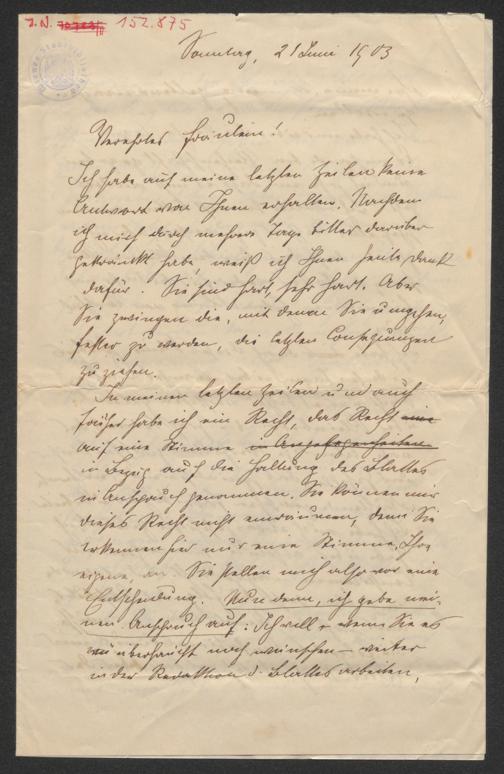 J. N. 152.875
Sonntag, 21 Juni 1903
Verehrtes Fräulein!
Ich habe auf meine letzten Zeilen keine
Antwort von Ihnen erhalten. Nachdem
ich mich durch mehrere Tage bitter darüber
gekränkt habe, weiß ich Ihnen heute Dank
dafür. Sie sind hart, sehr hart. Aber
Sie zwingen die, mit denen Sie umgehen,
fester zu werden, die letzten Consequenzen
zu ziehen.
In meinen letzten Zeilen und auch
früher habe ich ein Recht, das Recht eine
auf eine Stimme in Angelegenheiten
in Bezug auf die Haltung des Blattes
in Anspruch genommen. Sie können mir
dieses Recht nicht einräumen, denn Sie
erkennen hier nur eine Stimme, Ihre
eigene, an. Sie stellen mich also vor eine
Entscheidung. Nun denn, ich gebe mei-
nen Anspruch auf: Ich will – wenn Sie es
überhaupt noch wünschen – weiter
in der Redaktion d. Blattes arbeiten,